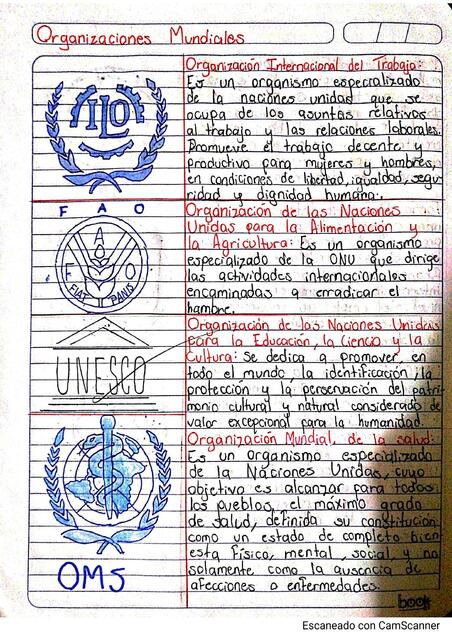 Organizaciones Mundiales
Organización Internacional del Trabajo:
Es un organismo especializado
de la naciones unidad que se
ocupa de los asuntos relativos
al trabajo y las relaciones laborales.
Promueve el trabajo decente y
productivo para mujeres y hombres,
en condiciones de libertad, igualdad, segu
ridad y dignidad humana.
ILO
Organización de las Naciones
Unidas para la Alimentación y
la Agricultura: Es un organismo
especializado de la ONU que dirige
las actividades internacionales
encaminadas a erradicar el
hambre.
F A O
F A O
FIAT PANIS
Organización de las Naciones Unidas
para la Educación, la Ciencia y la
Cultura: Se dedica a promover, en
todo el mundo, la identificación, la
protección y la perservación del patri
monio cultural y natural considerado de
valor excepcional para la humanidad.
UNESCO
Organización Mundial, de la salud:
Es un organismo especializado
de la Naciones Unidas, cuyo
objetivo es alcanzar para todos
los pueblos, el máximo grado
de salud, definida su constitución
como un estado de completo bien
esta físico, mental, social, y no
solamente como la ausencia de
afecciones o enfermedades.
OMS
book
Escaneado con CamScanner